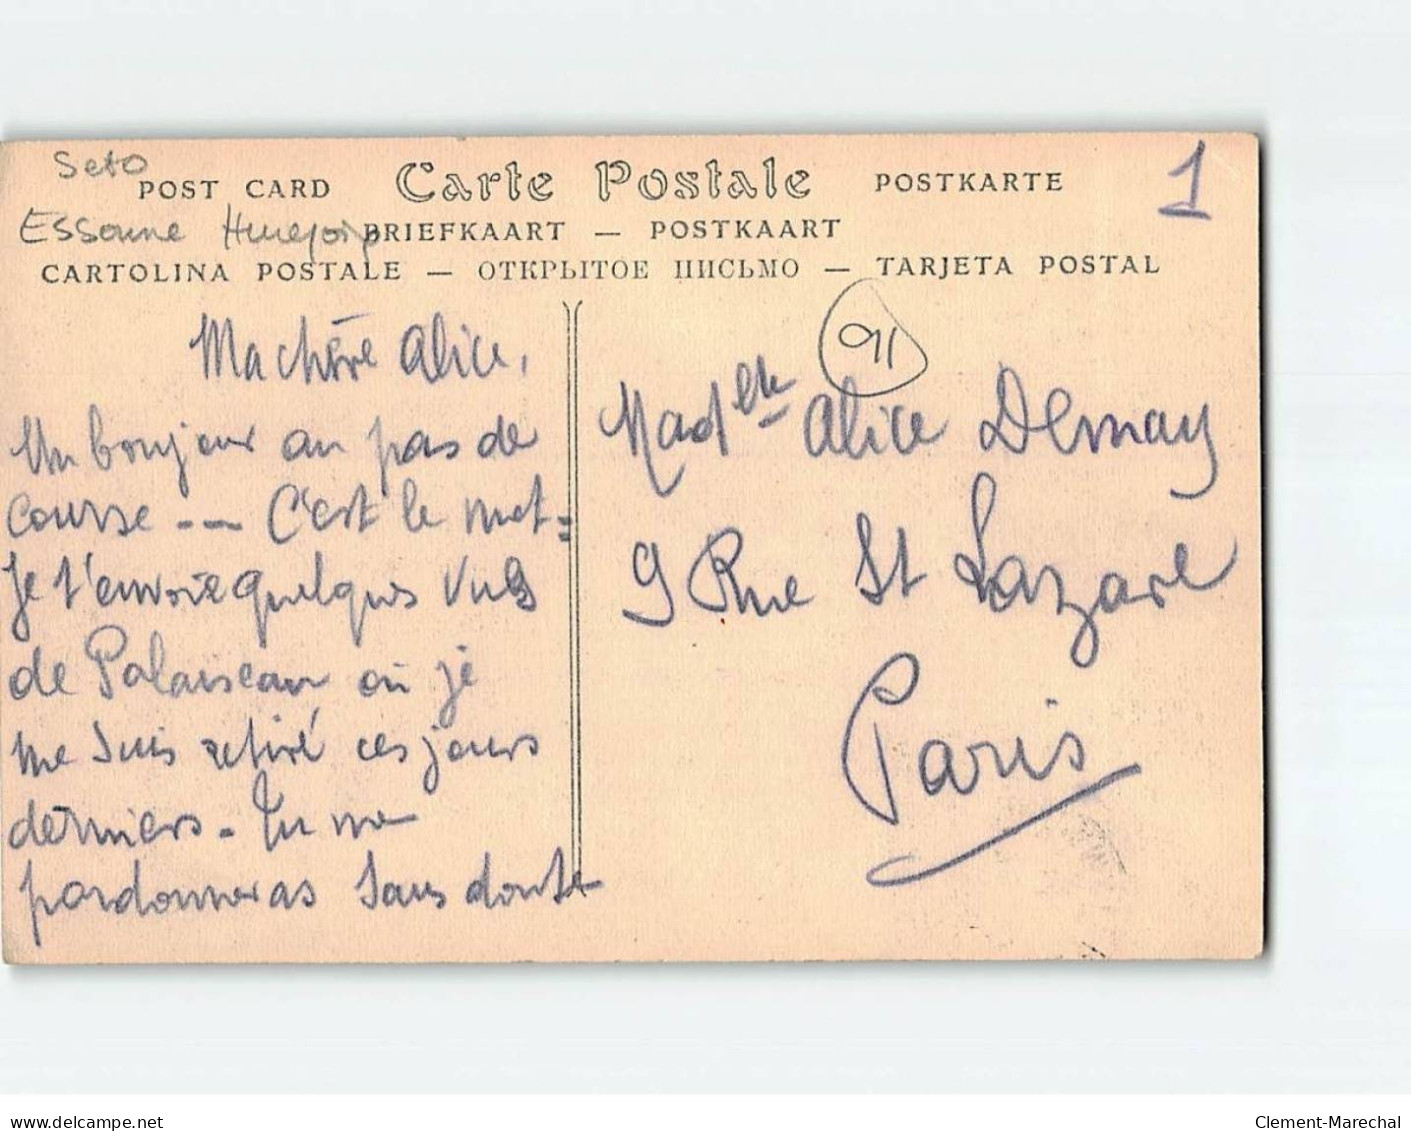 Seto
POST CARD Carte Postale POSTKARTE
1
Essonne
BRIEFKAART — POSTKAART
CARTOLINA POSTALE — ОТКРЫТОЕ ПИСЬМО — TARJETA POSTAL
91
Ma chère Alice,
Un bonjour au pas de
course -- C'est le mot-
Je t'envoie quelques vues
de Palaiseau où je
me suis retiré ces jours
derniers - Tu me
pardonneras sans doute
Madelle Alice Demay
9 Rue St Lazare
Paris
www.delcampe.net
Clement-Marechal